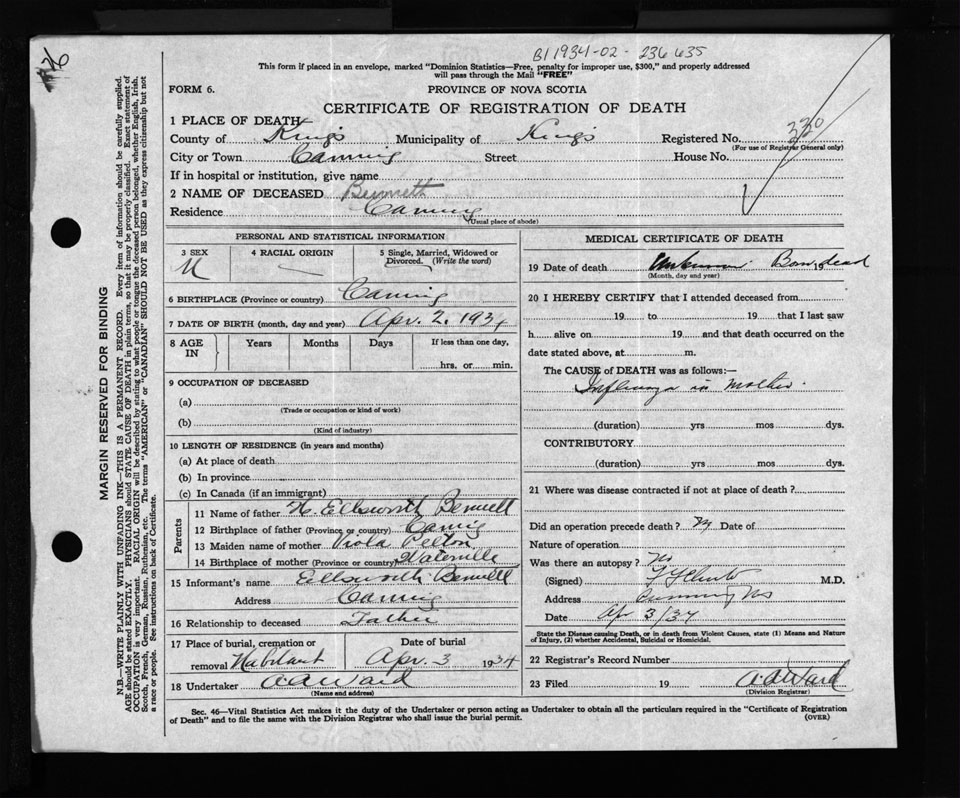 B1 1934-02-236635
This form if placed in an envelope, marked "Dominion Statistics—Free, penalty for improper use, $300," and properly addressed
will pass through the Mail "FREE"
FORM 6.
PROVINCE OF NOVA SCOTIA
CERTIFICATE OF REGISTRATION OF DEATH
1 PLACE OF DEATH
County of Kings Municipality of Kings Registered No. 330
(For use of Registrar General only)
City or Town Canning Street House No.
If in hospital or institution, give name
2 NAME OF DECEASED Bennett
Residence Canning
(Usual place of abode)
PERSONAL AND STATISTICAL INFORMATION
3 SEX
M
4 RACIAL ORIGIN
5 Single, Married, Widowed or
Divorced. (Write the word)
6 BIRTHPLACE (Province or country) Canning
7 DATE OF BIRTH (month, day and year) Apr. 2. 1934
8 AGE
IN
Years Months Days If less than one day,
hrs. or min.
9 OCCUPATION OF DECEASED
(a)
(Trade or occupation or kind of work)
(b)
(Kind of industry)
10 LENGTH OF RESIDENCE (in years and months)
(a) At place of death
(b) In province
(c) In Canada (if an immigrant)
Parents
11 Name of father H. Ellsworth Bennett
12 Birthplace of father (Province or country) Canning
13 Maiden name of mother Viola Pelton
14 Birthplace of mother (Province or country) Waterville
15 Informant's name Ellsworth Bennett
Address Canning
16 Relationship to deceased Father
17 Place of burial, cremation or
removal Habitant
Date of burial
Apr. 3 1934
18 Undertaker A.A. Ward
(Name and address)
MEDICAL CERTIFICATE OF DEATH
19 Date of death Unknown Born dead 19
(Month, day and year)
20 I HEREBY CERTIFY that I attended deceased from
19 to 19 that I last saw
h alive on 19 and that death occurred on the
date stated above, at m.
The CAUSE of DEATH was as follows:—
Influenza in mother.
(duration) yrs mos dys.
CONTRIBUTORY
(duration) yrs mos dys.
21 Where was disease contracted if not at place of death ?
Did an operation precede death ? No Date of
Nature of operation
Was there an autopsy ? No
(Signed) M.D.
Address Canning NS
Date Apr 3/34
State the Disease causing Death, or in death from Violent Causes, state (1) Means and Nature
of Injury, (2) whether Accidental, Suicidal or Homicidal.
22 Registrar's Record Number
23 Filed 19 A.A. Ward
(Division Registrar)
Sec. 46—Vital Statistics Act makes it the duty of the Undertaker or person acting as Undertaker to obtain all the particulars required in the "Certificate of Registration
of Death" and to file the same with the Division Registrar who shall issue the burial permit.
(OVER)
MARGIN RESERVED FOR BINDING
N.B.—WRITE PLAINLY WITH UNFADING INK—THIS IS A PERMANENT RECORD. Every item of information should be carefully supplied.
AGE should be stated EXACTLY. PHYSICIANS should STATE CAUSE OF DEATH in plain terms, so that it may be properly classified. Exact statement of
OCCUPATION is very important. RACIAL ORIGIN will be described by stating to what people or tongue the deceased person belonged, whether English, Irish,
Scotch, French, German, Russian, Ruthenian, etc. The terms "AMERICAN" or "CANADIAN" SHOULD NOT BE USED as they express citizenship but not
a race or people. See instructions on back of Certificate.